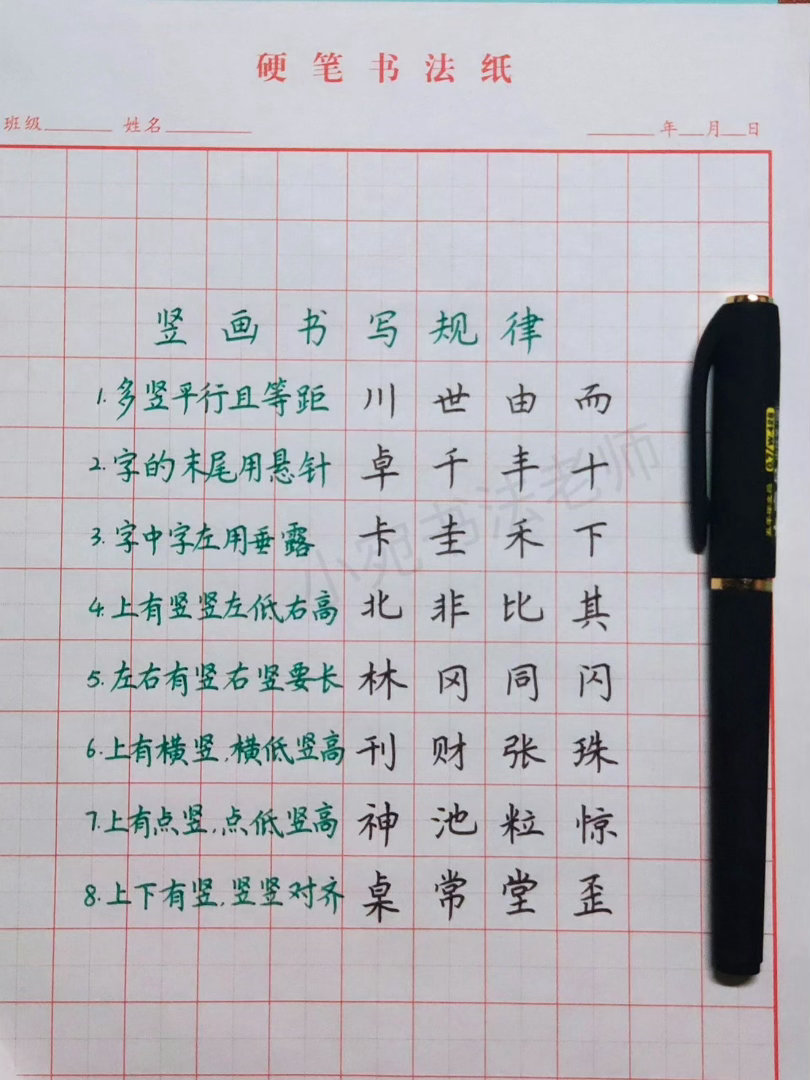 硬笔书法纸
班级 姓名 年 月 日
竖画书写规律
1.多竖平行且等距 川 世 由 而
2.字的末尾用悬针 卓 千 丰 十
3.字中字左用垂露 卡 圭 禾 下
4.上有竖竖左低右高 北 非 比 其
5.左右有竖右竖要长 林 冈 同 闪
6.上有横竖,横低竖高 刊 财 张 珠
7.上有点竖,点低竖高 神 池 粒 惊
8.上下有竖,竖竖对齐 桌 常 堂 歪
小宛书法老师